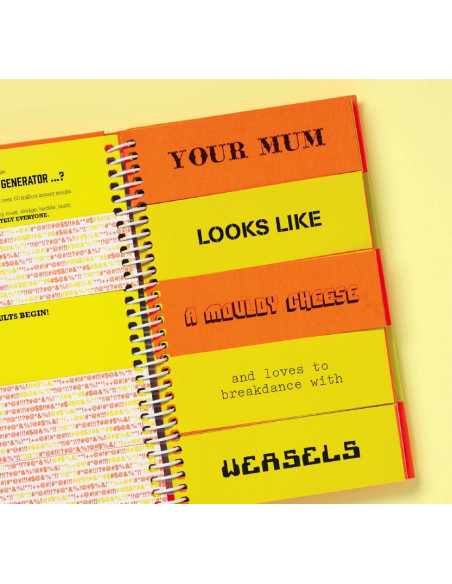 GENERATOR ...?
over 60 million instant insults
TELY EVERYONE.
ULTS BEGIN!
YOUR MUM
LOOKS LIKE
A MOULDY CHEESE
and loves to
breakdance with
WEASELS